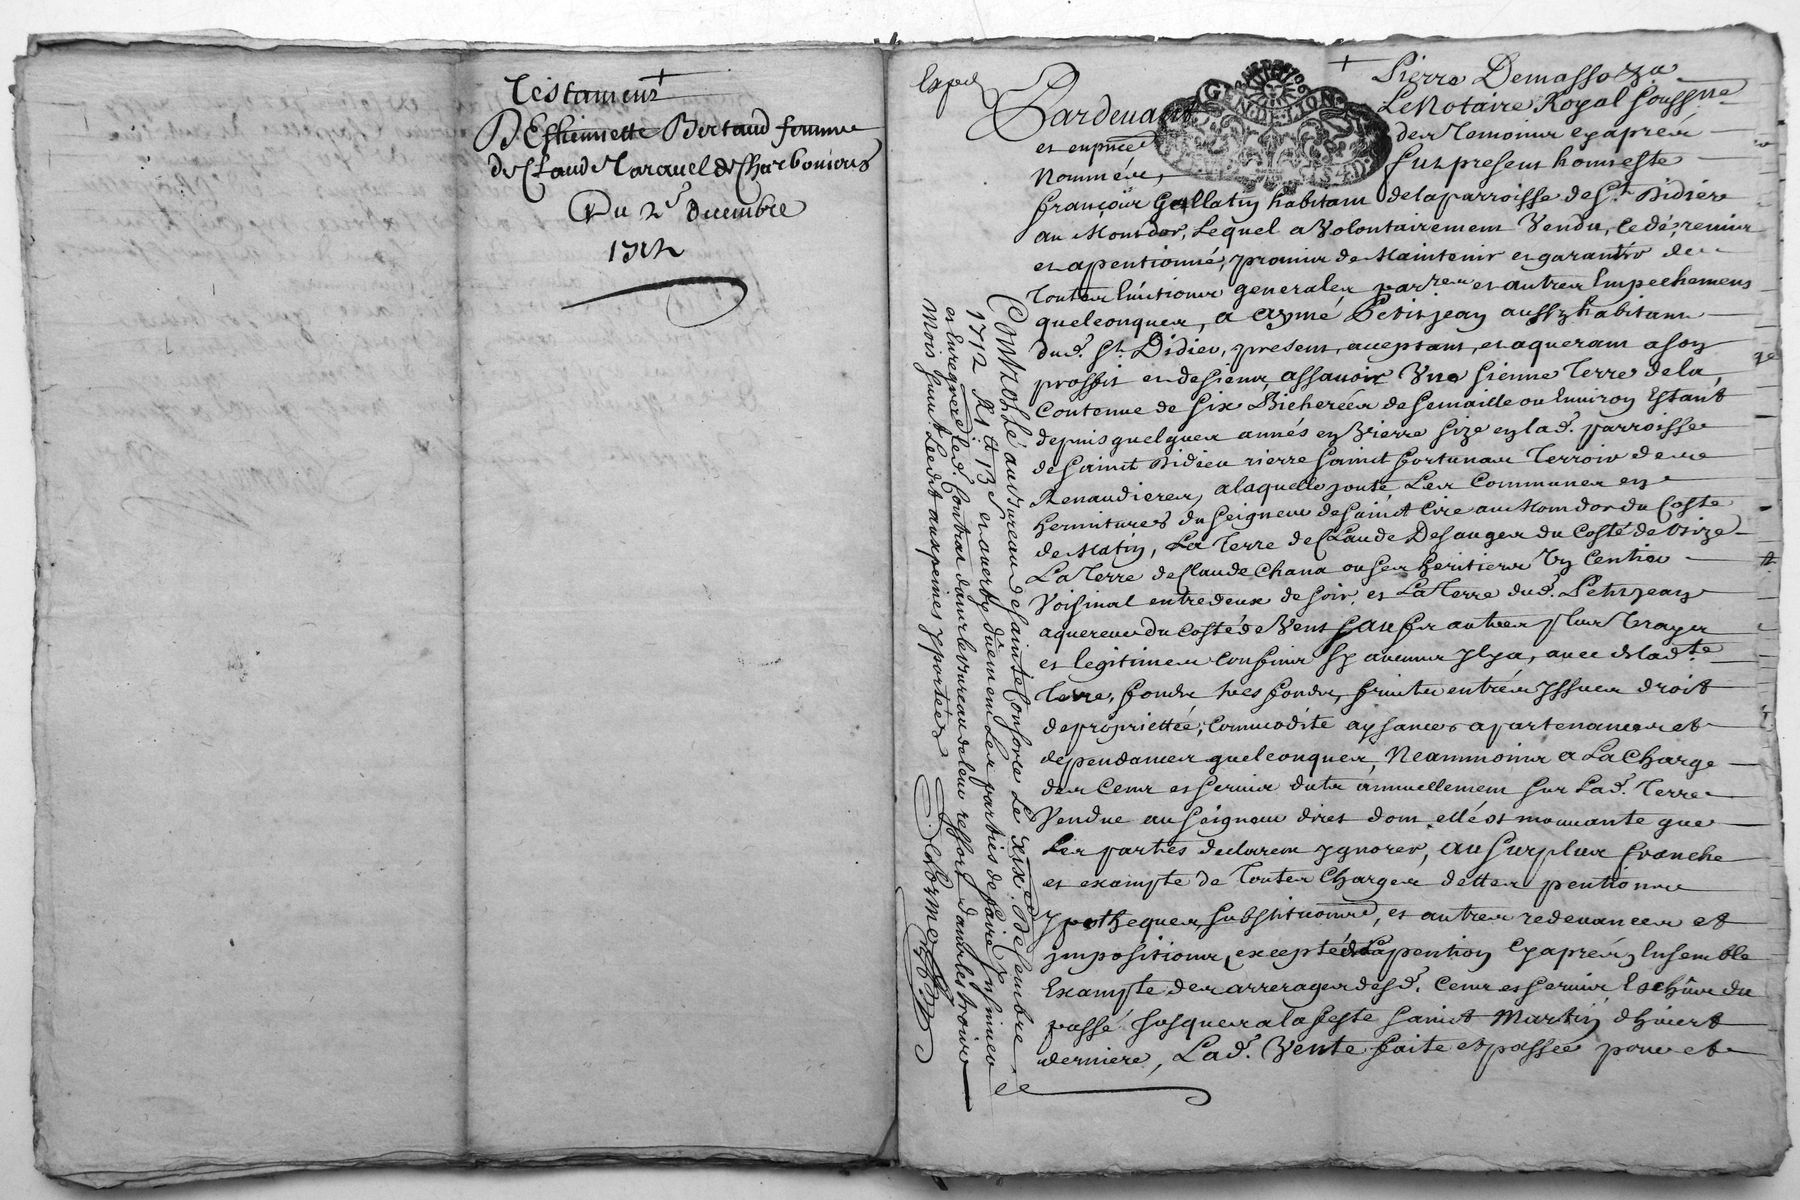 Testament
D'Estiennette Bertaud femme
de Claude Maravel de Charbonieres
Du 2e Decembre
1712
Exped
Pardevant Pierre Demassoza
Le Notaire Royal Soussne
et en pnce des Temoins cy apres
Nommés, fut present honneste
françois Gallatin habitant de la parroisse de St. Didier
au Montdor, Lequel a Volontairement Vendu, Cedé, remis
et apentionné, promis de Maintenir et garantir de
Touttes Evictions generales parres et autres Empechemens
quelconques, a aymé Petitjean aussy habitant
dud. St. Didier, present, acceptant, et aquerant a son
proffit et des siens, assavoir Une sienne Terre de la
Contenue de six Bicherées de semaille ou Environ Estant
depuis quelques annés en size en lad. parroisse
de saint Didier rierre saint fortunat Terroir de
Renaudieres, a laquelle jouté Les Communes en
du Seigneur de saint Cire au Montdor du Costé
de Matin, La Terre de Claude Desauges du Costé de bize
La Terre de Claude Chana ou ses heritiers Un Sentier
Voisinal entredeux de soir, et La Terre dud. Petitjean
aquereur du Costé de Vent sauf ses autres plus Vrayes
et legitimes Confins sy aucuns Il y a, avec de lad.te
Terre, fonds tres fonds, fruits entrées yssues droit
de proprietteé, Commodité aysances apartenances et
dependances quelconques, Neammoins a La Charge
des Cens et servis duts annuellement sur Lad. Terre
Vendue au Seigneur diret dont elle est mouuante que
Les parties declarent ygnorer, au surplus franche
et exampte de Touttes Charges dettes pentions
ypotheques, substitutions, et autres redevances et
impositions, excepté de la pention Cy apres, Ensemble
Exampte des arrerages desd. Cens et servis Escheus du
passé jusques a la feste saint Martin d'hiuert
derniere, Lad. Vente faite et passée pour et
Controllé au Bureau de sainte Consorce Le xixe. Desembre
1712 Rs ₶ 13 s et auerty duement Les parties de faire Insinuer
et Enregrer led. Contrat dans le bureau de leur ressort dans les trois
Mois suiut Leedit aux peines y portées Delorme